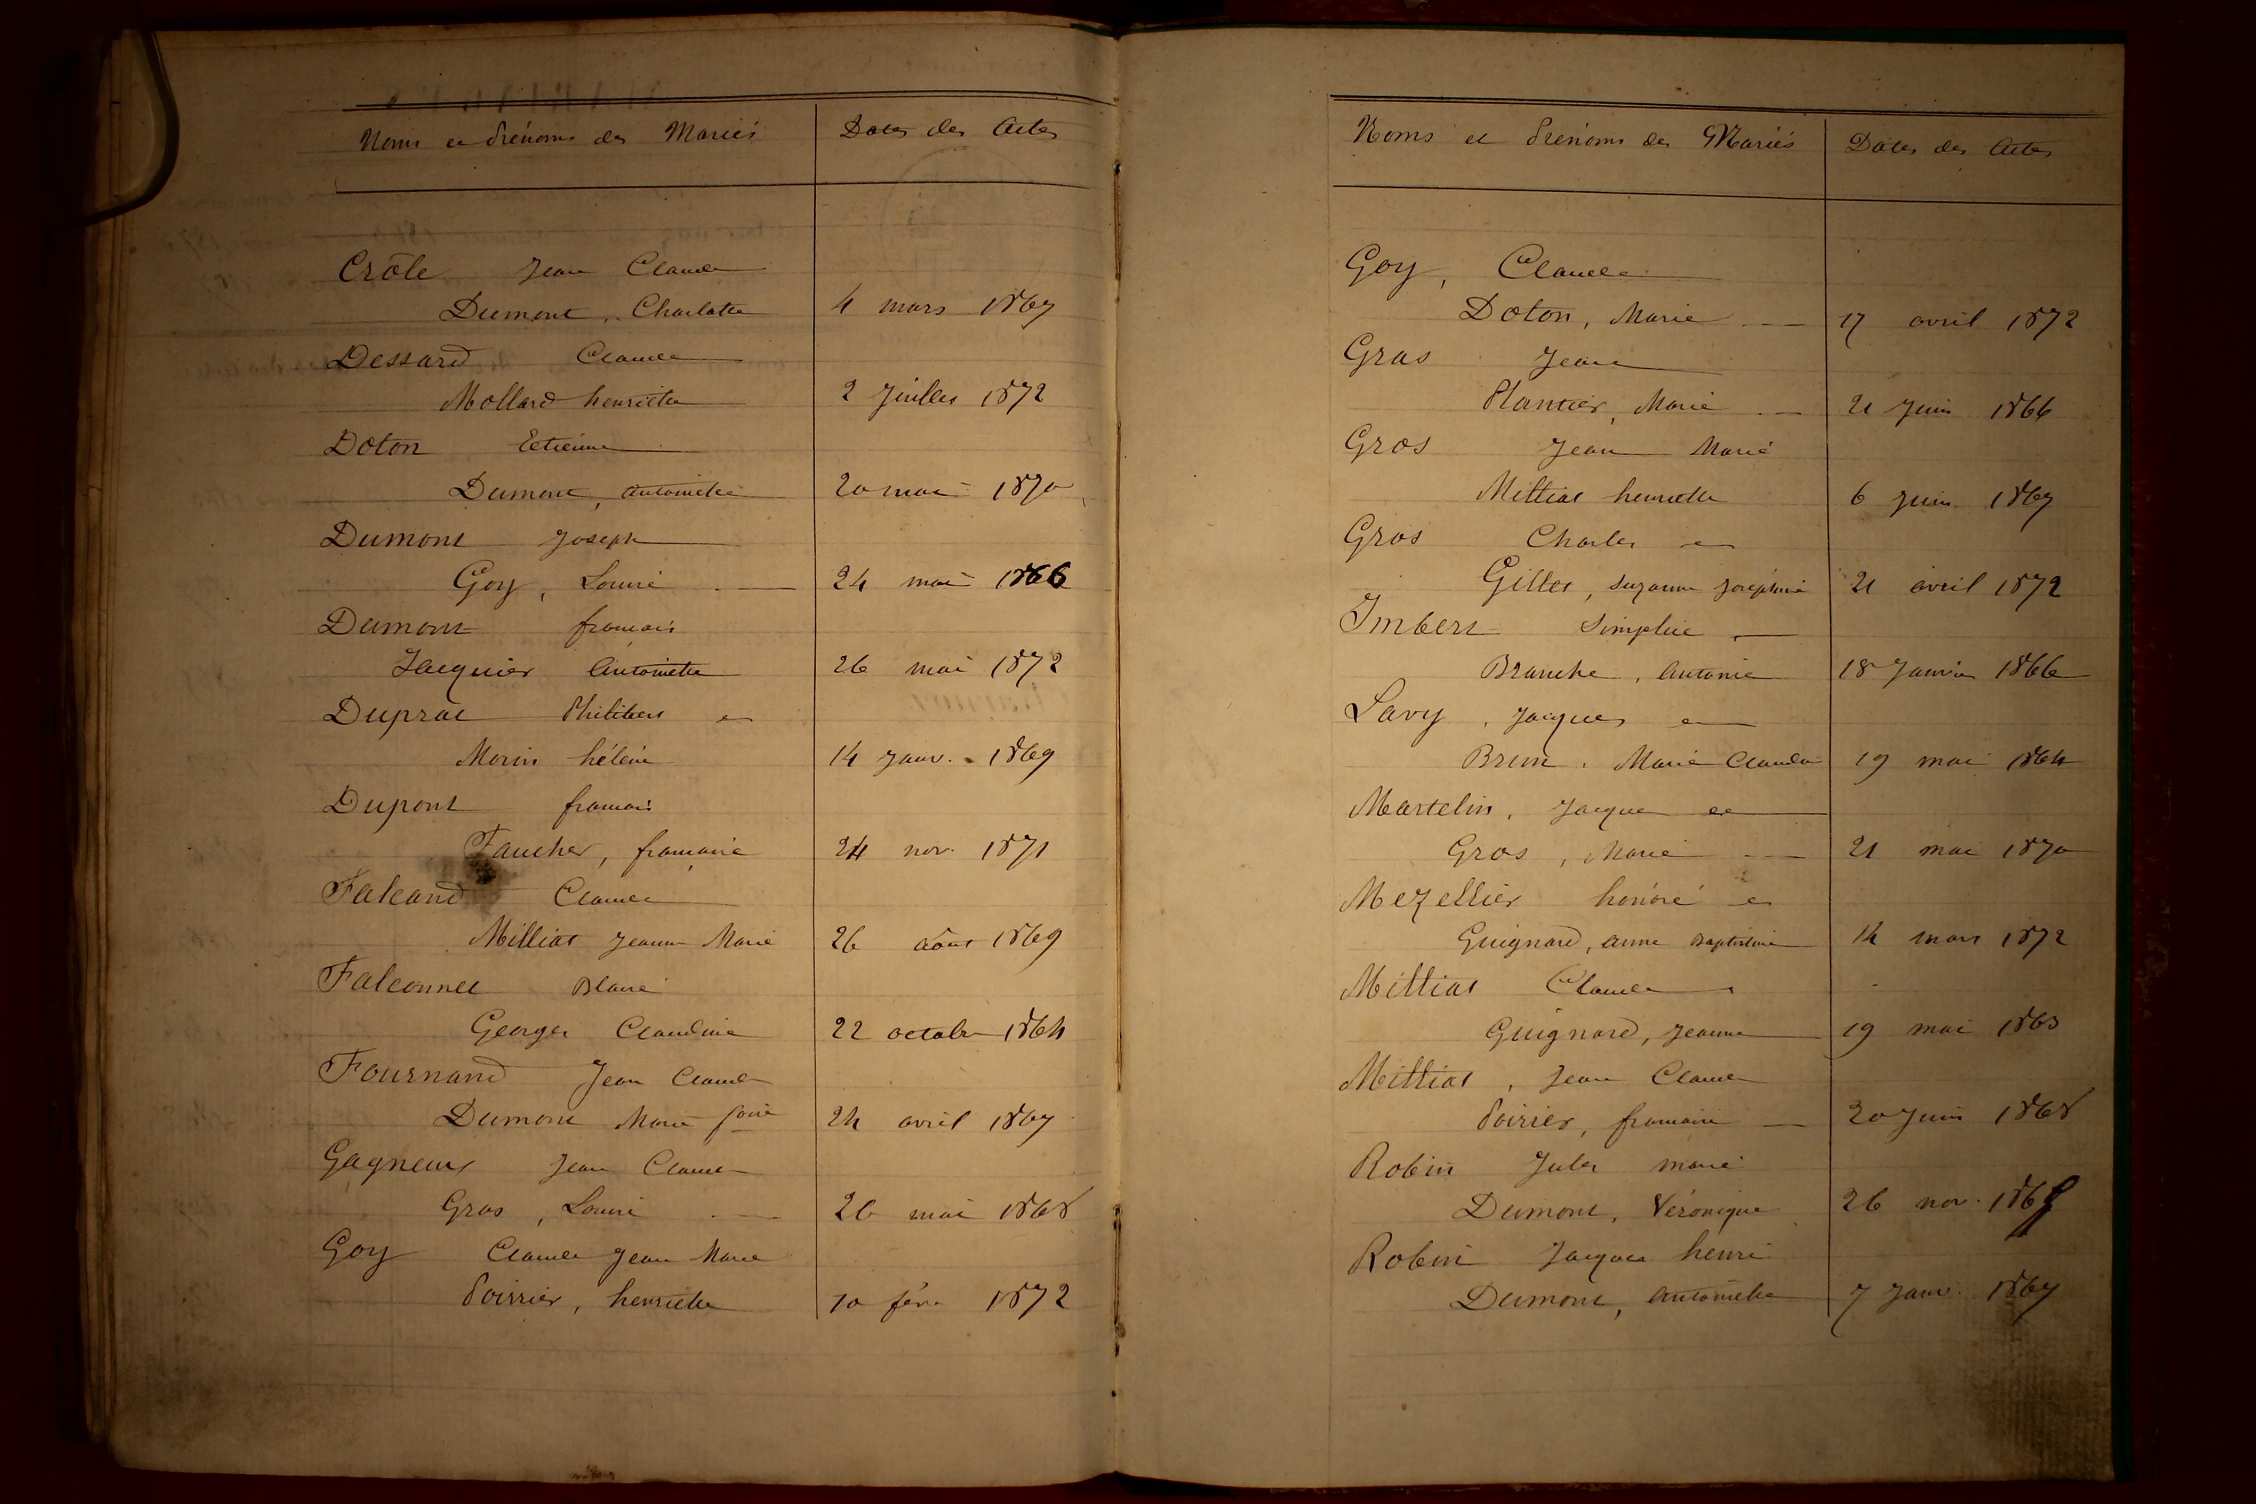 Noms et Prénoms des Mariés Dates des Actes
Crôle Jean Claude
Dumont, Charlotte 4 mars 1867
Dessard Claude
Mollard henriette 2 Juillet 1872
Doton Etienne
Dumont, antoinette 20 mai 1870
Dumont Joseph
Goy, Louise 24 mai 1866
Dumont francois
Jacquier Antoinette 26 mai 1872
Duprat Philibert et
Morin hélène 14 Janv. 1869
Dupont francois
Faucher, francoise 24 nov. 1871
Falcand Claude
Milliat Jeanne Marie 26 août 1869
Falconnet Blaise
Georges Claudine 22 octobre 1864
Fournand Jean Claude
Dumont Marie 24 avril 1867
Gagneur Jean Claude
Gros, Louise 26 mai 1868
Goy Claude Jean Marie
Poirrier, henriette 10 févr 1872
Noms et Prénoms des Mariés Dates des Actes
Goy, Claude
Doton, Marie 17 avril 1872
Gras Jean
Plantier, Marie 21 Juin 1866
Gros Jean Marie
Milliat henriette 6 Juin 1867
Gros Charles et
Gilles, Suzanne Joséphine 21 avril 1872
Imbert Simplice
Branche, Antonie 18 Janvier 1866
Lavy, Jacques et
Brun, Marie Claudine 19 mai 1864
Martelin, Jacques et
Gros, Marie 21 mai 1870
Mezellier honoré et
Guignard, anne Baptistine 14 mars 1872
Milliat Claude
Guignard, Jeanne 19 mai 1863
Milliat, Jean Claude
Poirier, francoise 20 Juin 1868
Robin Jules marie
Dumont, Véronique 26 nov.
Robin Jacques henri
Dumont, Antoinette 7 Janv. 1867